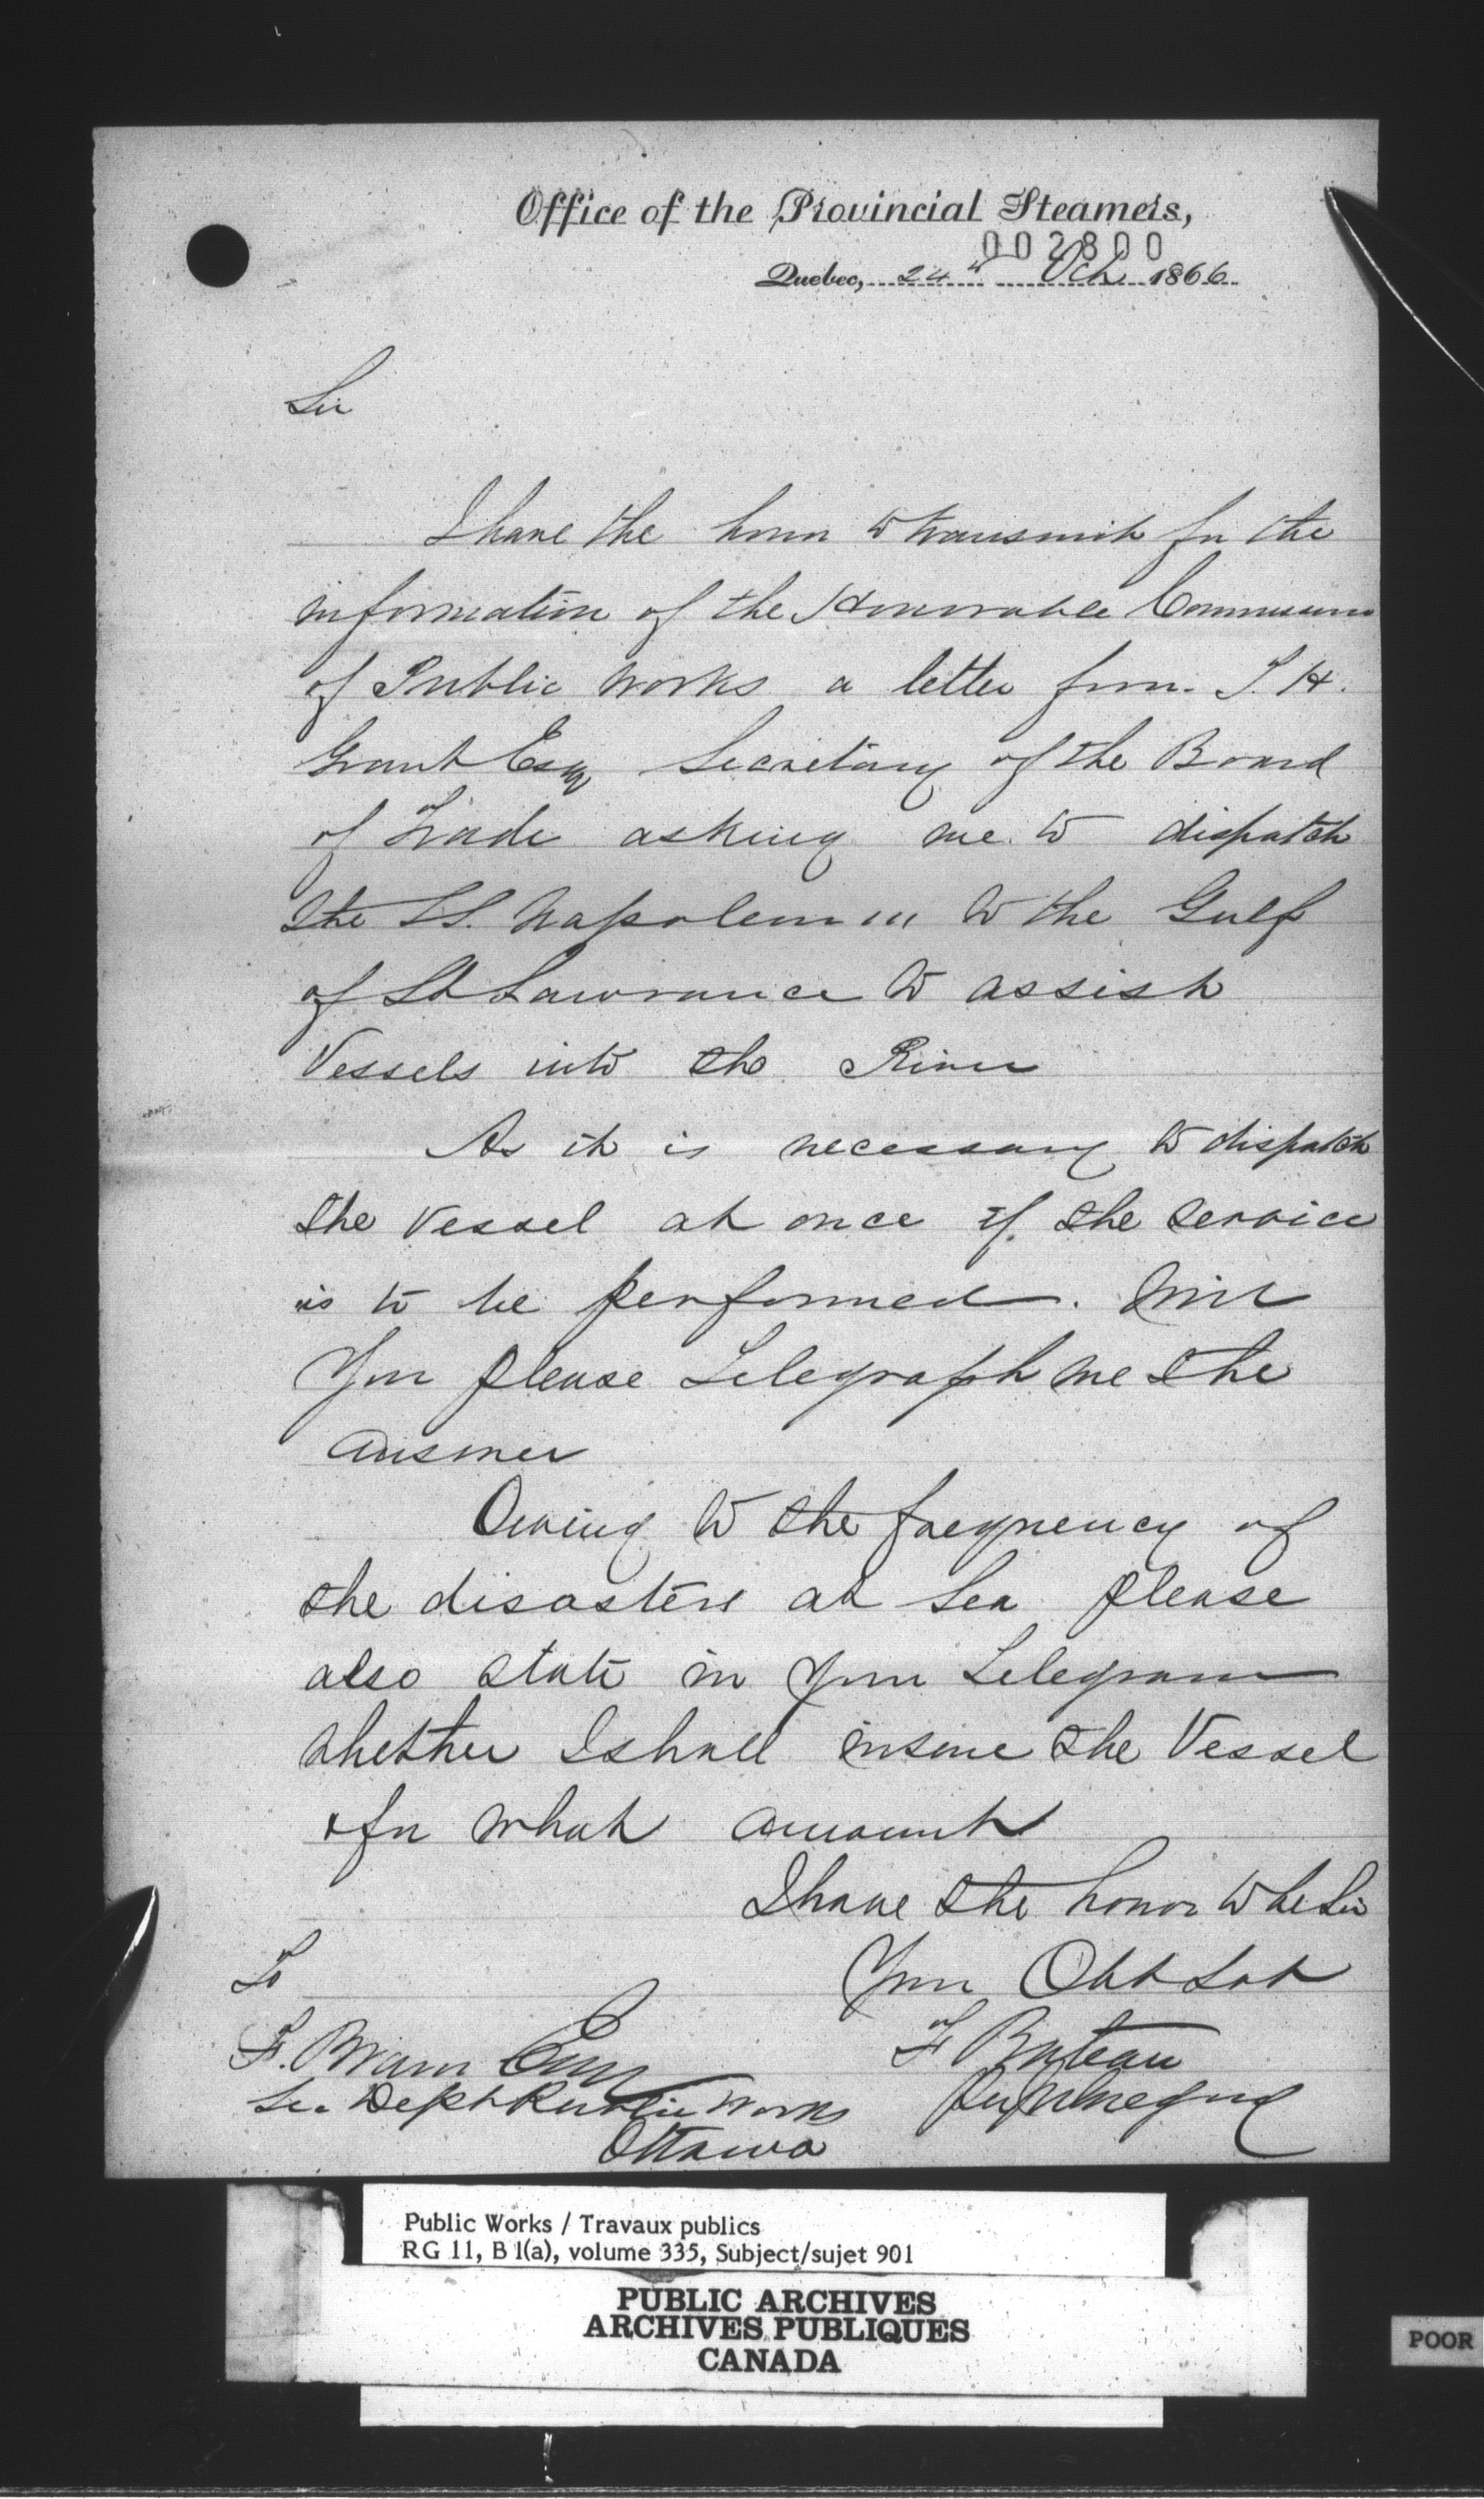 Office of the Provincial Steamers,
002800
Quebec, 24th Oct 1866
Sir
I have the honor to transmit for the
information of the Honorable Commissioner
of Public Works a letter from T. H.
Grant Esq Secretary of the Board
of Trade asking me to dispatch
the SS. Napoleon III to the Gulf
of St Lawrance to assist
Vessels into the River
As it is necessary to dispatch
the Vessel at once if the service
is to be performed. Will
You please Telegraph me the
answer
Owing to the frequency of
the disasters at Sea please
also state in your Telegram
whether I shall insure the Vessel
& for what amount
I have the honor to be Sir
Your Obt Svt
To
F. Braun Esq
F Buteau
Sec Dept Public Works
Ottawa
Public Works / Travaux publics
RG 11, B 1(a), volume 335, Subject/sujet 901
PUBLIC ARCHIVES
ARCHIVES PUBLIQUES
CANADA
POOR